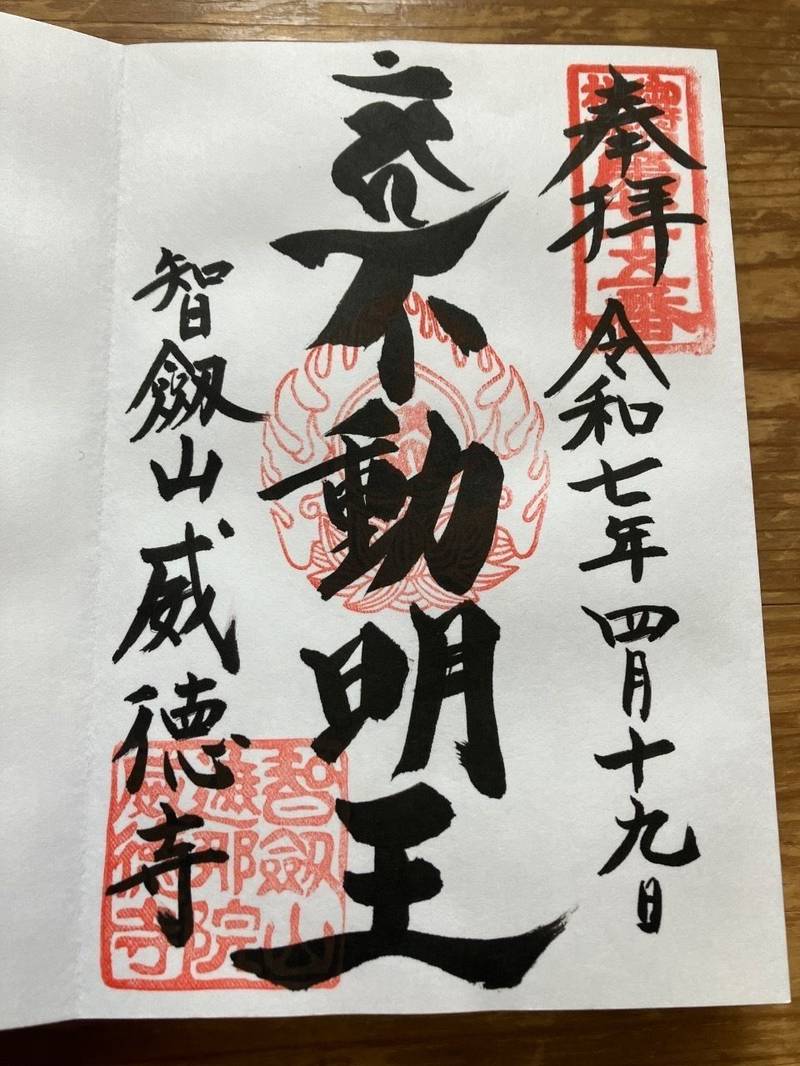 奉拝 令和七年四月十九日
不動明王
智劔山威徳寺
智劔山
遮那院
威徳寺